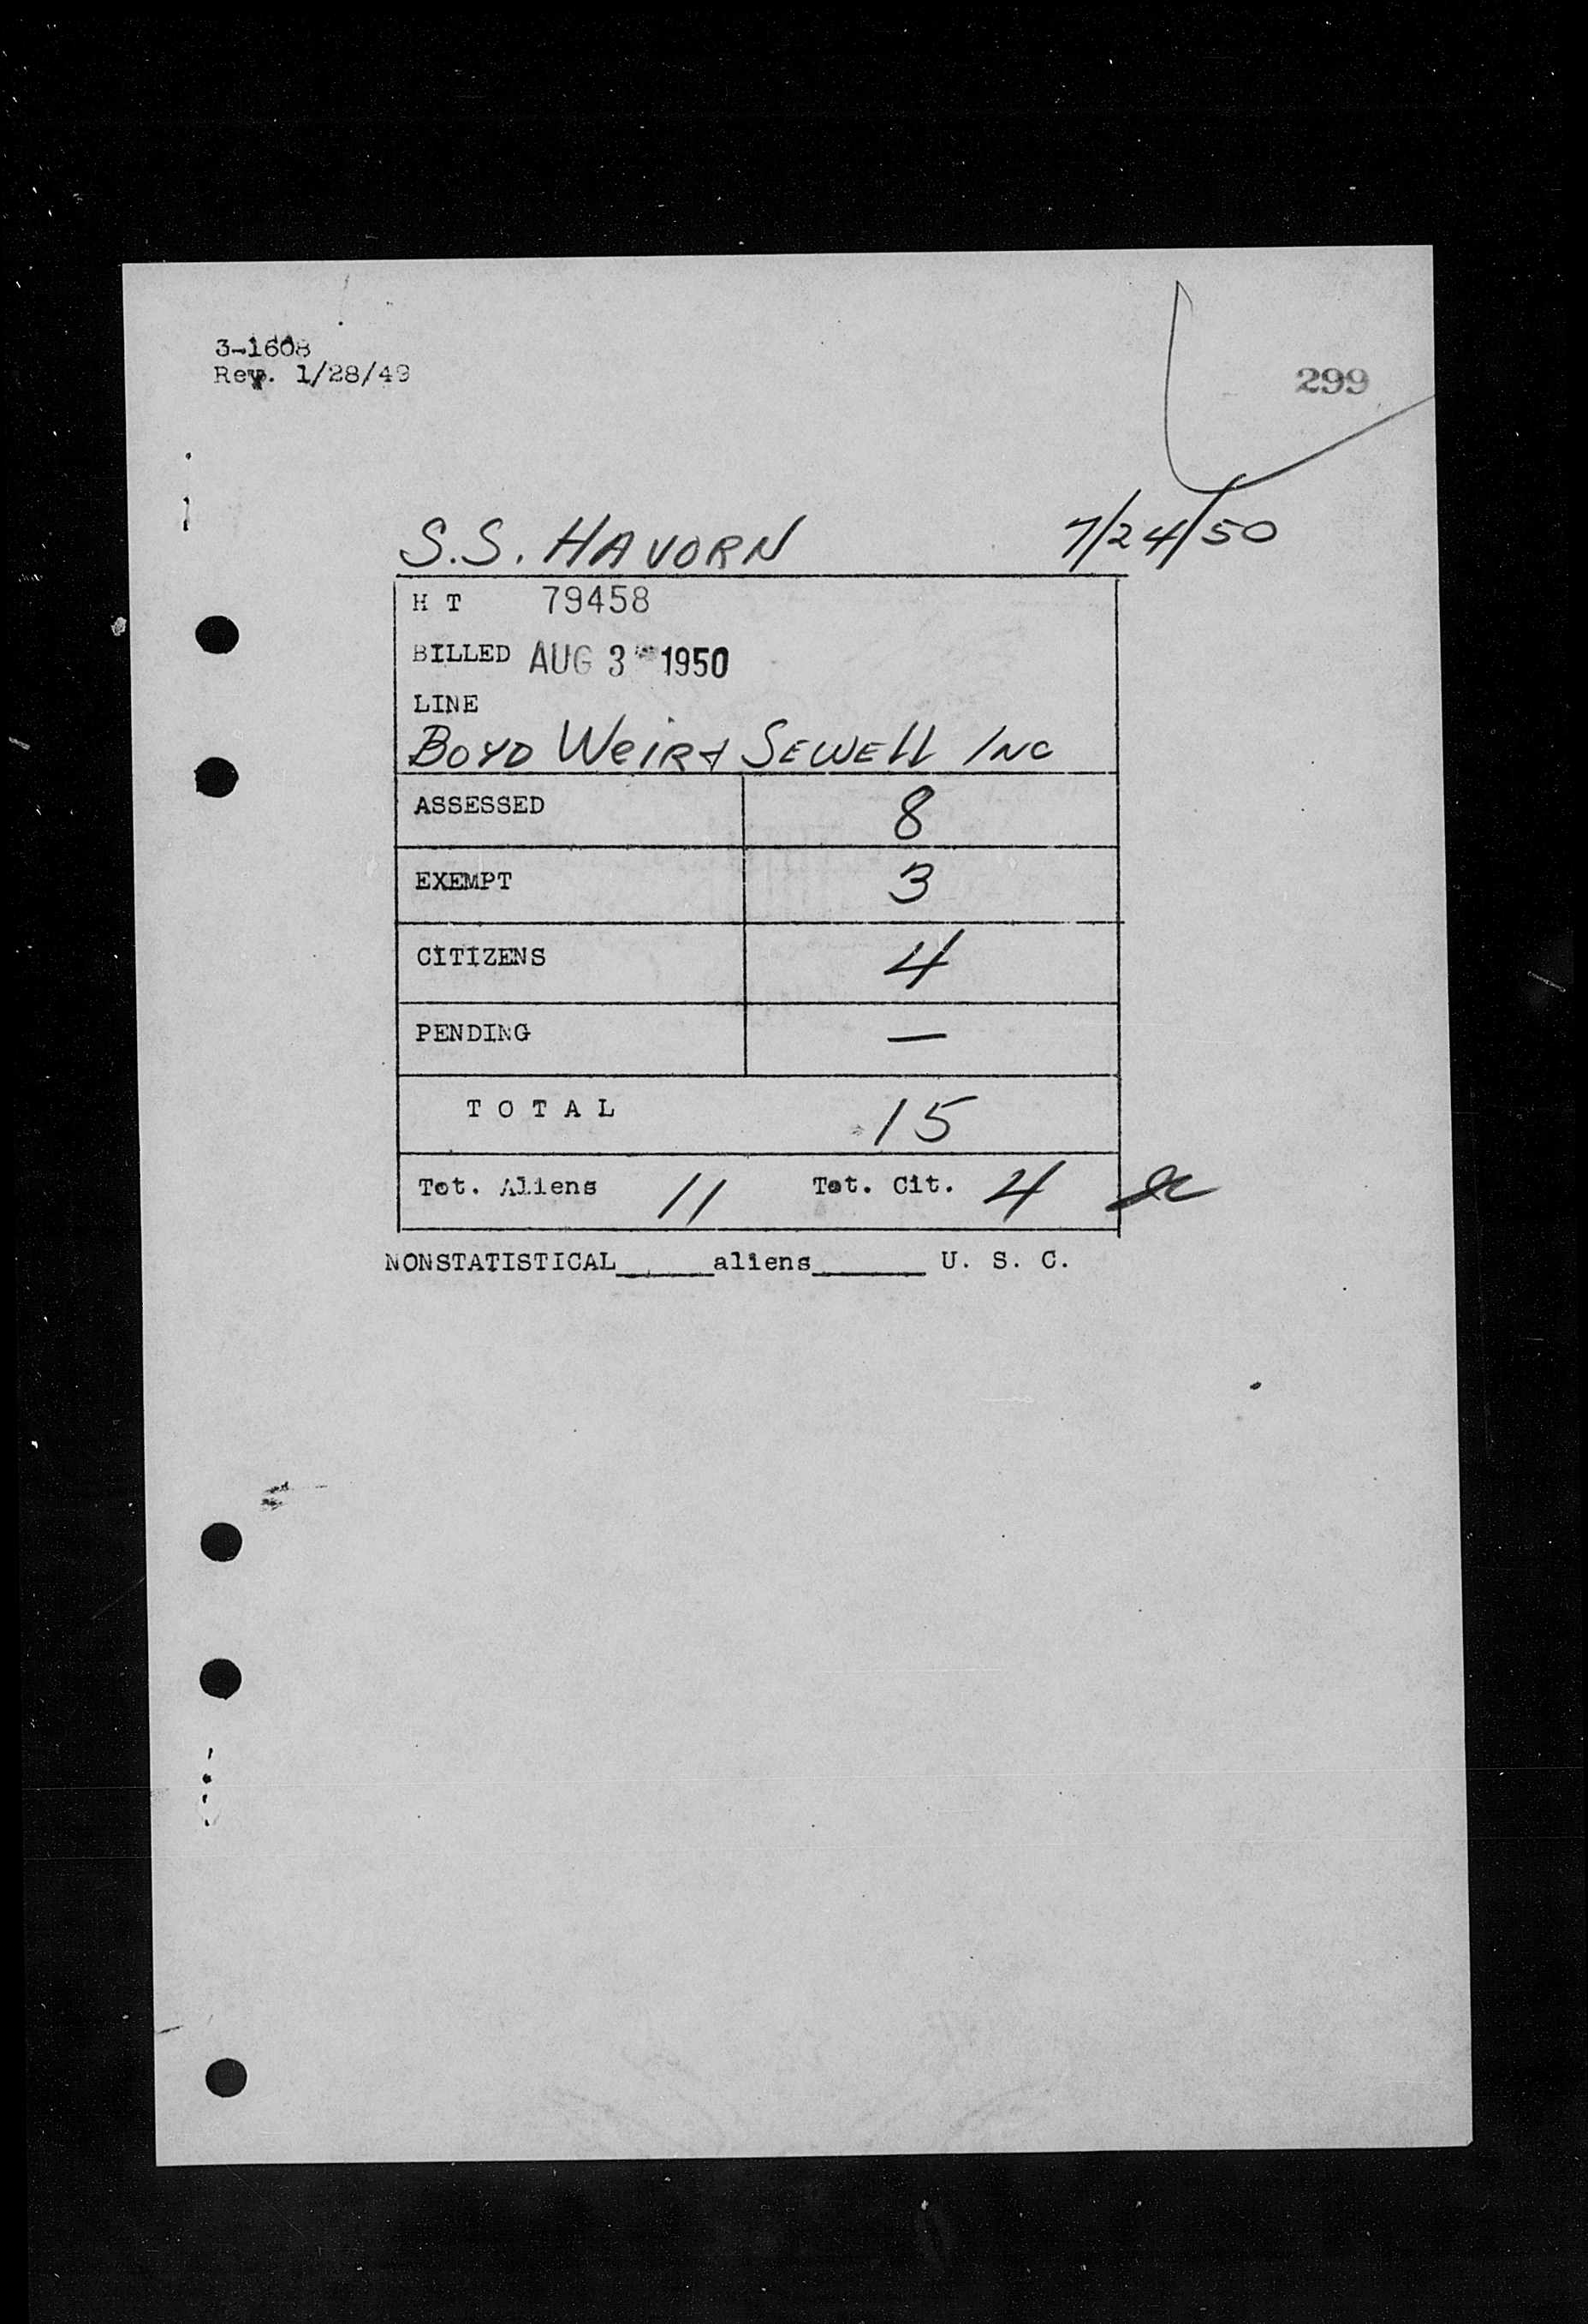 3-1608
Rev. 1/28/49
299
S.S. HAVORN 7/24/50
H T 79458
BILLED AUG 3 1950
LINE
BOYD WEIR & SEWELL INC
ASSESSED 8
EXEMPT 3
CITIZENS 4
PENDING —
T O T A L 15
Tot. Aliens 11 Tot. Cit. 4
NONSTATISTICAL_____aliens______ U. S. C.